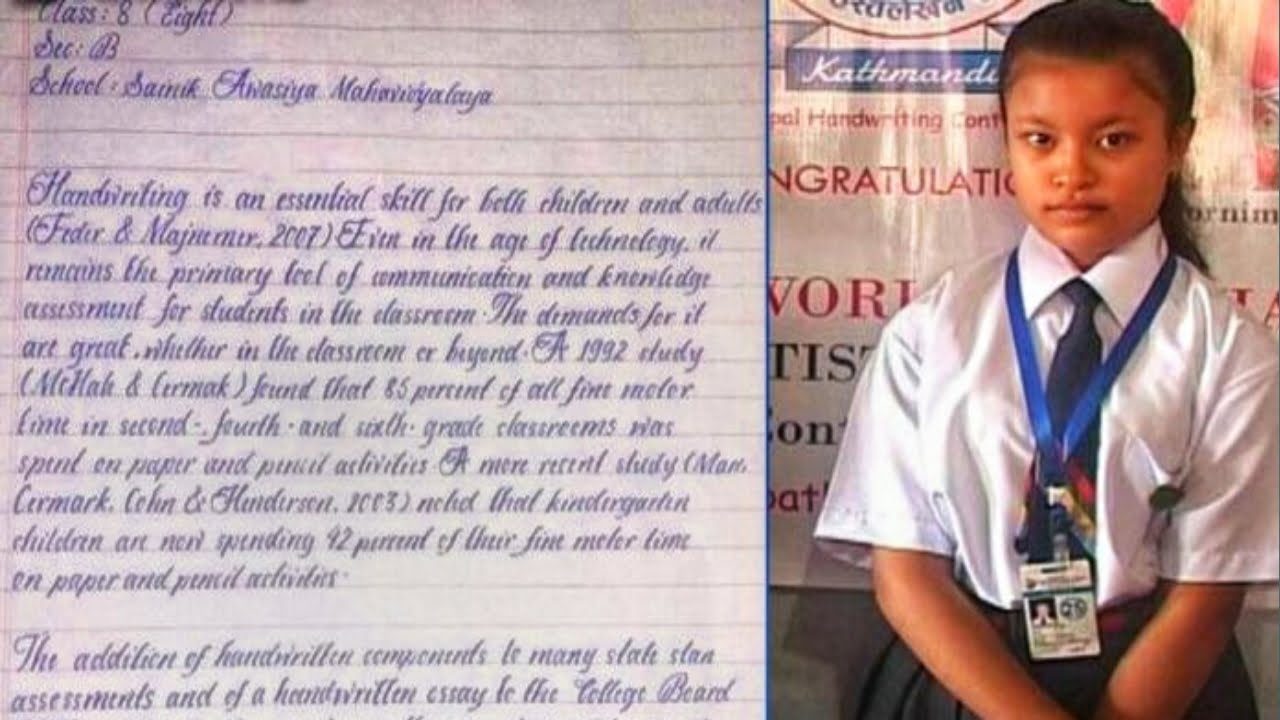 Class: 8 (Eight)
Sec: B
School: Sainik Awasiya Mahavidyalaya
Handwriting is an essential skill for both children and adults
(Feder & Majnemer, 2007) Even in the age of technology, it
remains the primary tool of communication and knowledge
assessment for students in the classroom. The demands for it
are great, whether in the classroom or beyond. A 1992 study
(McHale & Cermak) found that 85 percent of all fine motor
time in second-, fourth- and sixth- grade classrooms was
spent on paper and pencil activities. A more recent study (Marr,
Cermark, Cohn & Henderson, 2003) noted that kindergarten
children are now spending 42 percent of their fine motor time
on paper and pencil activities.
The addition of handwritten components to many state stan
assessments and of a handwritten essay to the College Board
हस्तलेखन
Kathmandu
pal Handwriting Cont
NGRATULATIO
ornim
WORL
IA
TIST
Cont